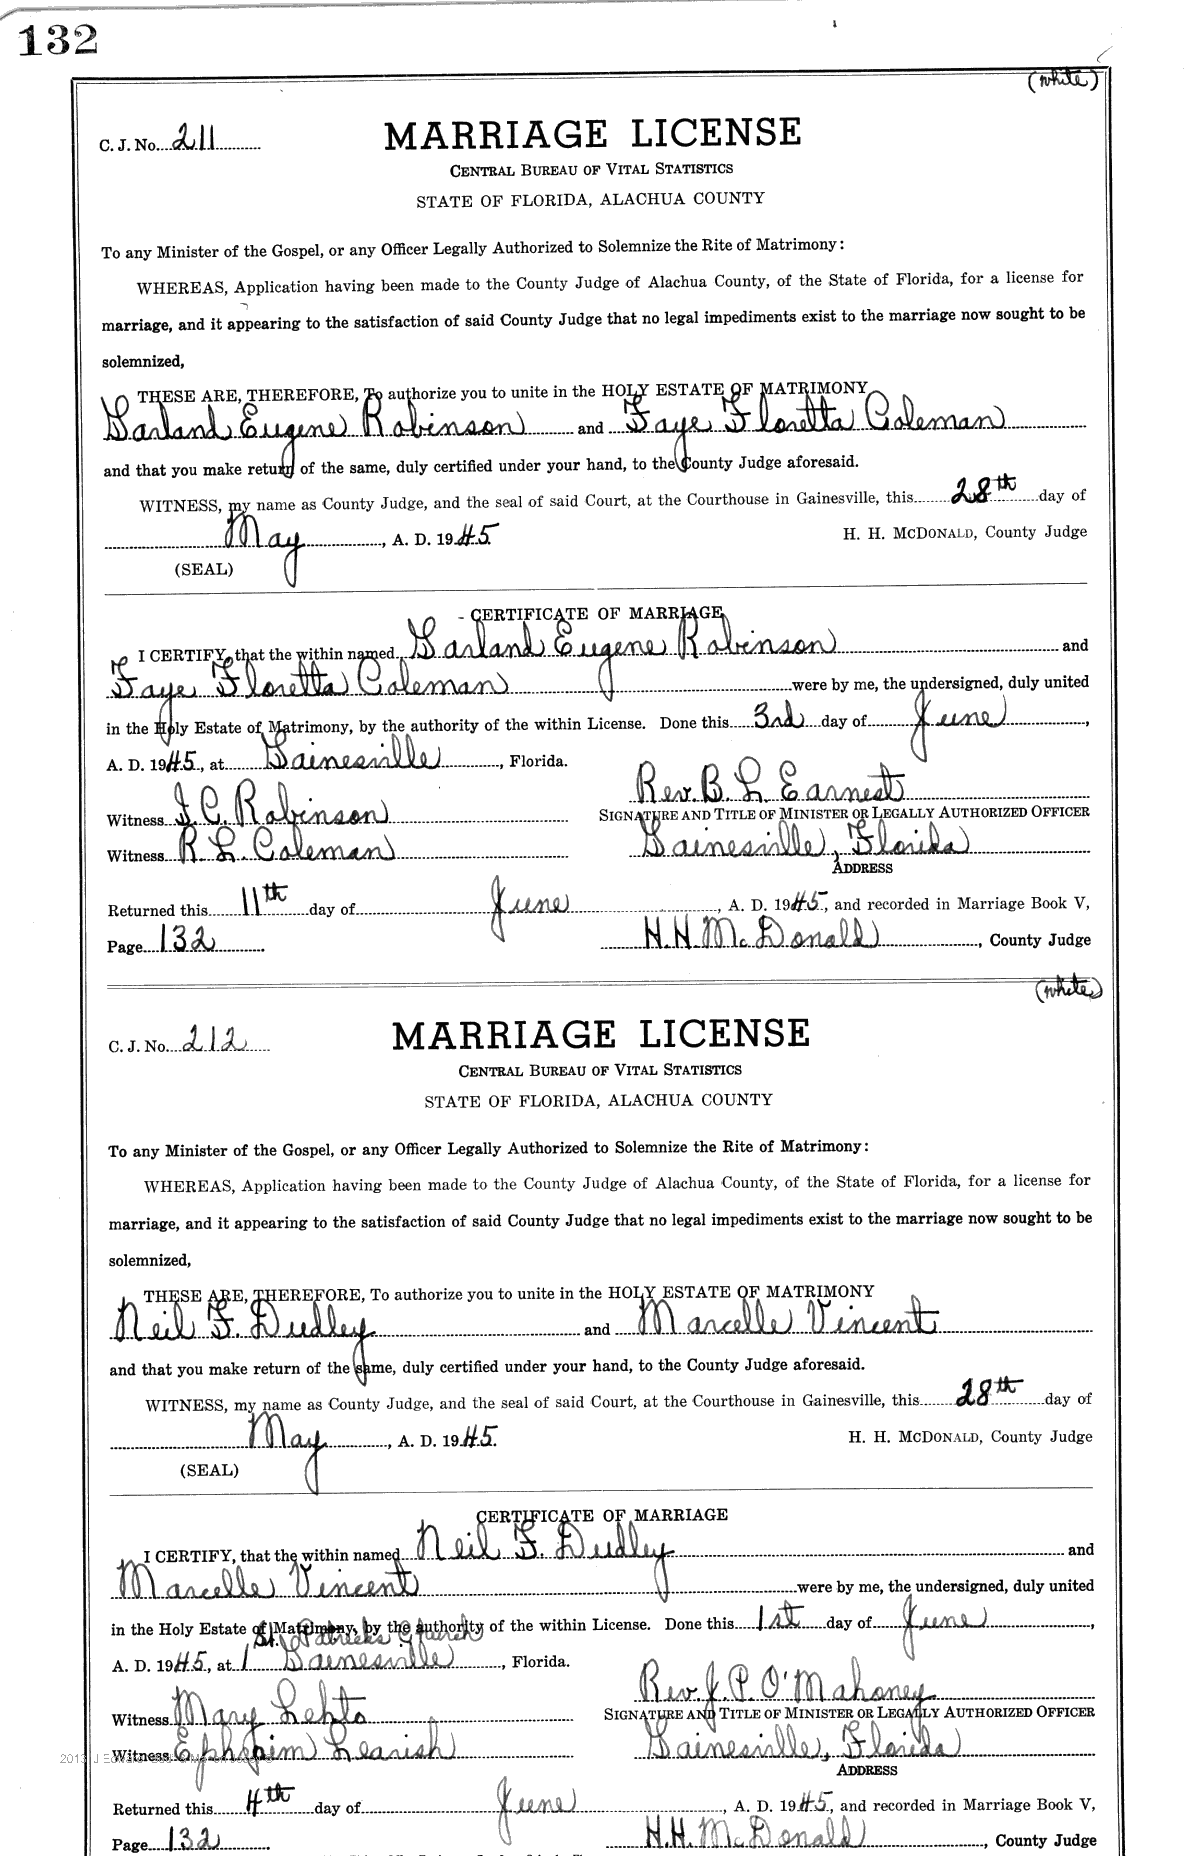 132
(white)
C. J. No. 211
MARRIAGE LICENSE
CENTRAL BUREAU OF VITAL STATISTICS
STATE OF FLORIDA, ALACHUA COUNTY
To any Minister of the Gospel, or any Officer Legally Authorized to Solemnize the Rite of Matrimony:
WHEREAS, Application having been made to the County Judge of Alachua County, of the State of Florida, for a license for
marriage, and it appearing to the satisfaction of said County Judge that no legal impediments exist to the marriage now sought to be
solemnized,
THESE ARE, THEREFORE, To authorize you to unite in the HOLY ESTATE OF MATRIMONY
Garland Eugene Robinson and Faye Floretta Coleman
and that you make return of the same, duly certified under your hand, to the County Judge aforesaid.
WITNESS, my name as County Judge, and the seal of said Court, at the Courthouse in Gainesville, this 28th day of
May, A. D. 1945. H. H. MCDONALD, County Judge
(SEAL)
CERTIFICATE OF MARRIAGE
I CERTIFY, that the within named Garland Eugene Robinson and
Faye Floretta Coleman were by me, the undersigned, duly united
in the Holy Estate of Matrimony, by the authority of the within License. Done this 3rd day of June,
A. D. 1945, at Gainesville, Florida.
Rev. B. L. Earnest
Witness J. C. Robinson SIGNATURE AND TITLE OF MINISTER OR LEGALLY AUTHORIZED OFFICER
Witness R. L. Coleman Gainesville, Florida
ADDRESS
Returned this 11th day of June, A. D. 1945, and recorded in Marriage Book V,
Page 132 H. H. McDonald, County Judge
(white)
C. J. No. 212
MARRIAGE LICENSE
CENTRAL BUREAU OF VITAL STATISTICS
STATE OF FLORIDA, ALACHUA COUNTY
To any Minister of the Gospel, or any Officer Legally Authorized to Solemnize the Rite of Matrimony:
WHEREAS, Application having been made to the County Judge of Alachua County, of the State of Florida, for a license for
marriage, and it appearing to the satisfaction of said County Judge that no legal impediments exist to the marriage now sought to be
solemnized,
THESE ARE, THEREFORE, To authorize you to unite in the HOLY ESTATE OF MATRIMONY
Neil F. Dudley and Marcelle Vincent
and that you make return of the same, duly certified under your hand, to the County Judge aforesaid.
WITNESS, my name as County Judge, and the seal of said Court, at the Courthouse in Gainesville, this 28th day of
May, A. D. 1945. H. H. MCDONALD, County Judge
(SEAL)
CERTIFICATE OF MARRIAGE
I CERTIFY, that the within named Neil F. Dudley and
Marcelle Vincent were by me, the undersigned, duly united
in the Holy Estate of Matrimony, by the authority of the within License. Done this 1st day of June,
St. Patricks Church
A. D. 1945, at Gainesville, Florida.
Rev. J. P. O'Mahoney
Witness Mary Lehto SIGNATURE AND TITLE OF MINISTER OR LEGALLY AUTHORIZED OFFICER
Witness Ephraim Learish Gainesville, Florida
ADDRESS
Returned this 4th day of June, A. D. 1945, and recorded in Marriage Book V,
Page 132 H. H. McDonald, County Judge